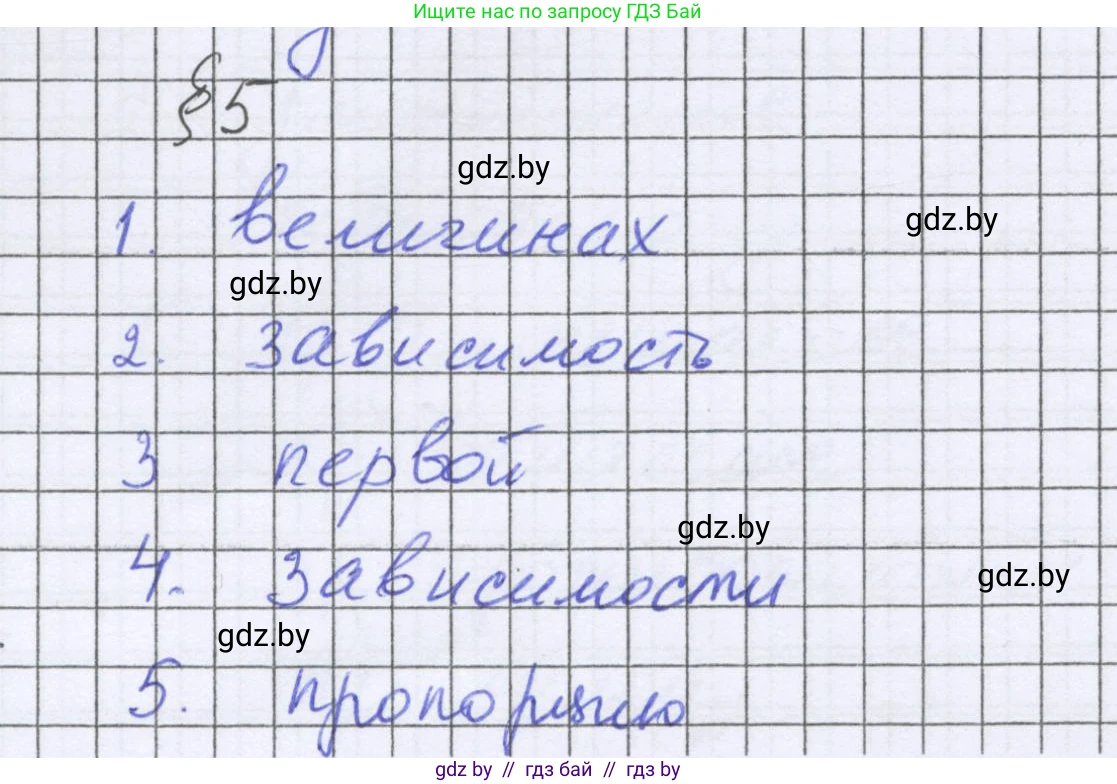 Ищите нас по запросу ГДЗ Бай
§5
gdz.by
1. величинах
gdz.by
gdz.by
2. зависимость
3 первой
gdz.by
4. зависимости
gdz.by
gdz.by
5. пропорцию
gdz.by // гдз бай // гдз by